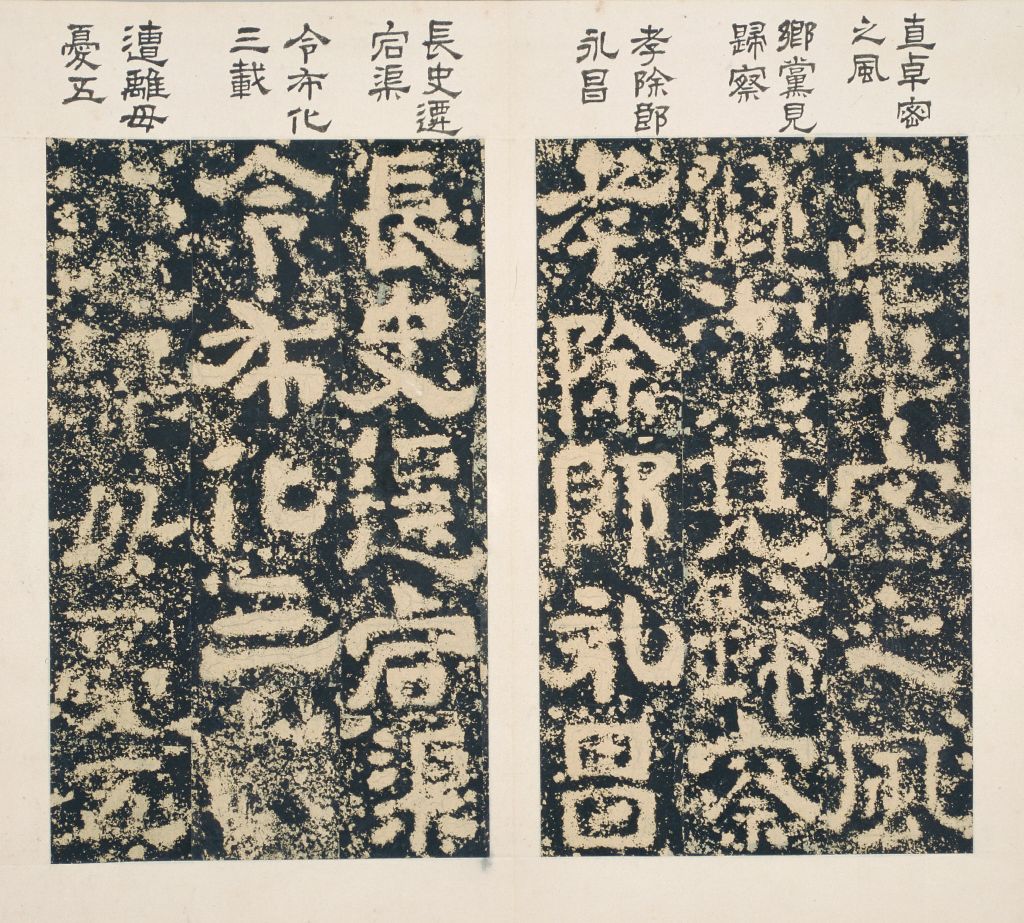 直卓密
之風
鄉黨見
歸察
孝除郎
永昌
長史遷
宕渠
令布化
三載
遭離母
憂五
直卓密之風
鄉黨見歸察
孝除郎永昌
長史遷宕渠
令布化三
母憂五